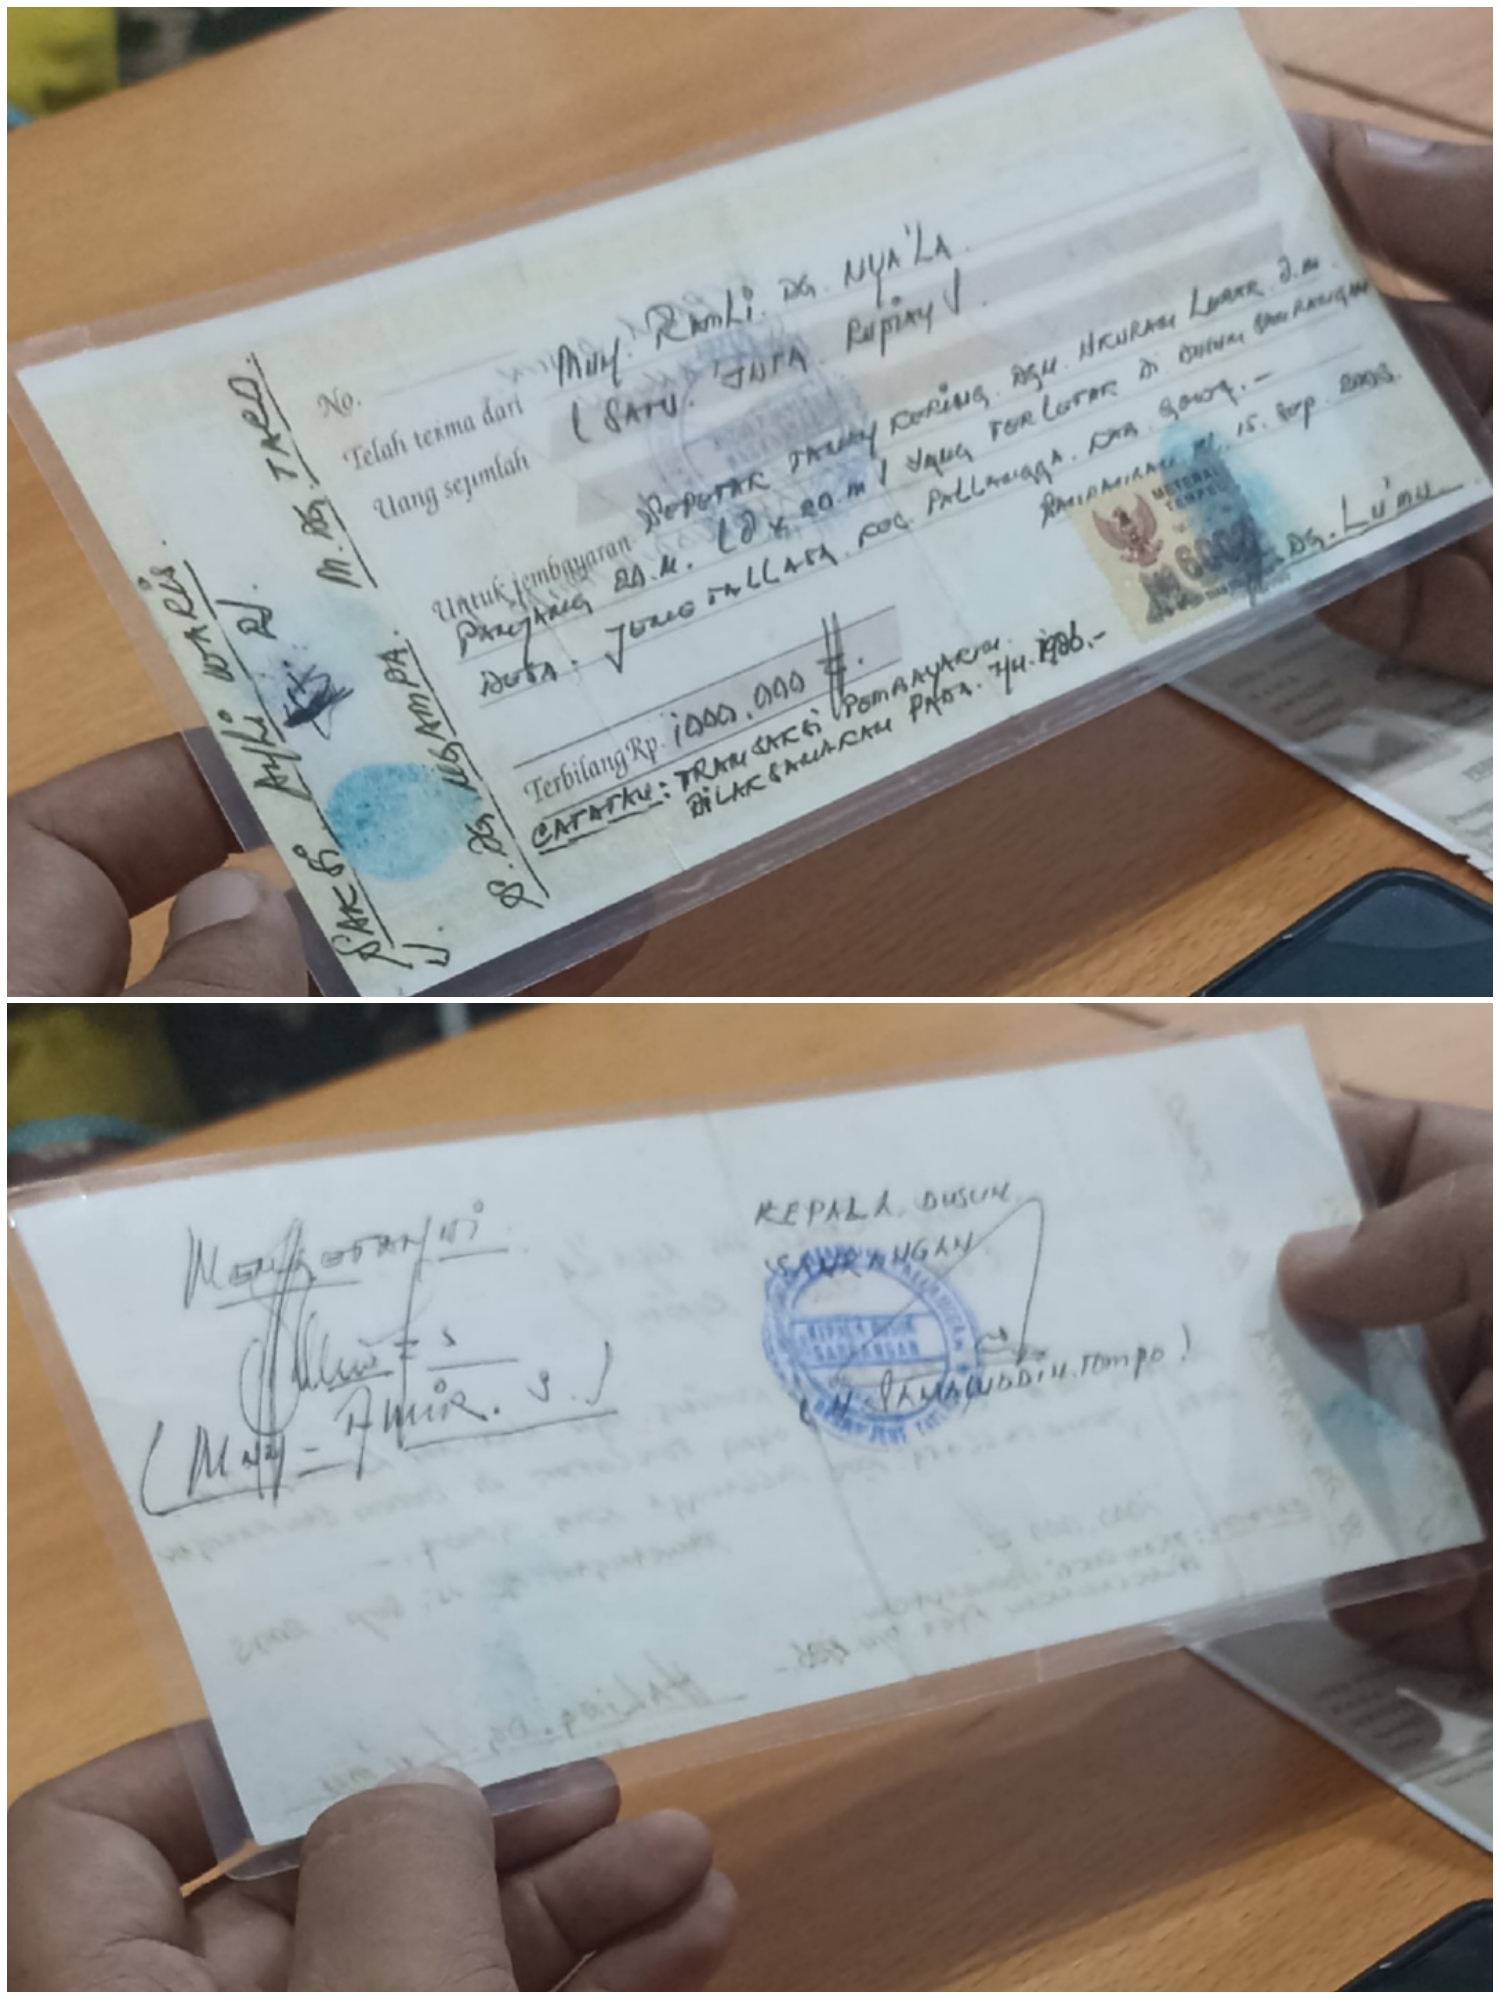 No.
Telah terima dari MUH. RAMLI. DG. NYA'LA
Uang sejumlah (SATU. JUTA RUPIAH)
Untuk pembayaran SEPETAK TANAH KERING. DGN. UKURAN LEBAR. 8.M
PANJANG 20.M. (8 X 20.M) YANG TERLETAK DI DUSUN SANRANGAN
DESA. JENETALLASA. KEC. PALLANGGA. KAB. GOWA.-
15. Sep. 2008.
Terbilang Rp. 1000.000
METERAI
TEMPEL
6000
DG. LU'MU
CATATAN: TRANSAKSI PEMBAYARAN
DILAKSANAKAN PADA. 7/4.1986.-
SAKSI AHLI WARIS.
M. DG TARO.
S. DG NGAMPA.
MENGETAHUI
(MUH- AMIR. S.)
KEPALA DUSUN
SANRANGAN
KEPALA DUSUN
SANRANGAN
(H. SAMALUDDIN. TEMPO)